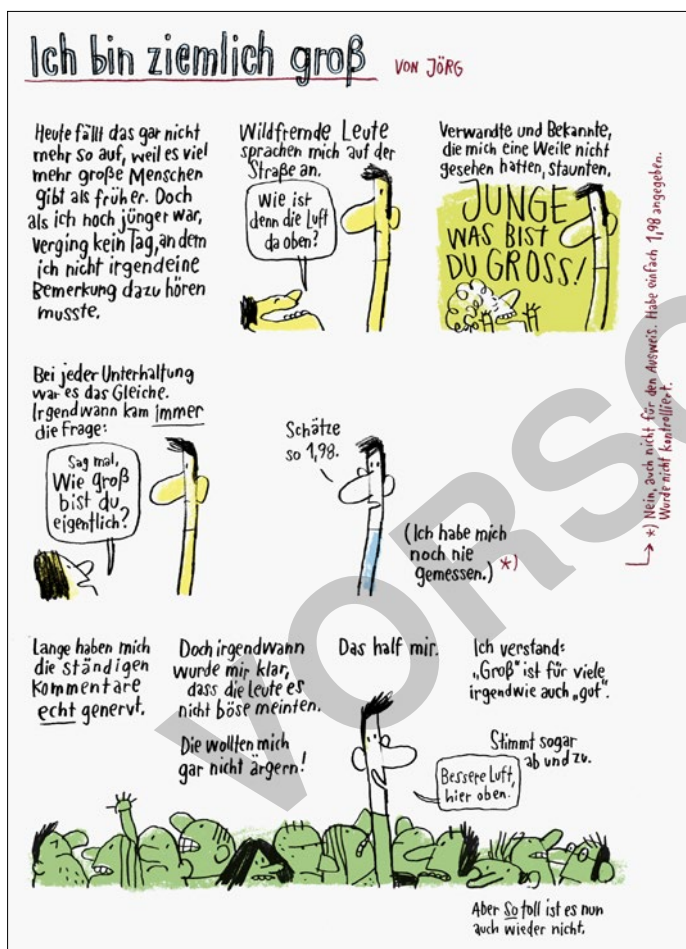 Ich bin ziemlich groß
VON JÖRG
Heute fällt das gar nicht
mehr so auf, weil es viel
mehr große Menschen
gibt als früher. Doch
als ich noch jünger war,
verging kein Tag, an dem
ich nicht irgendeine
Bemerkung dazu hören
musste.
Wildfremde Leute
sprachen mich auf der
Straße an.
Wie ist
denn die Luft
da oben?
Verwandte und Bekannte,
die mich eine Weile nicht
gesehen hatten, staunten.
JUNGE
WAS BIST
DU GROSS!
Bei jeder Unterhaltung
war es das Gleiche.
Irgendwann kam immer
die Frage:
Sag mal,
Wie groß
bist du
eigentlich?
Schätze
so 1,98.
(Ich habe mich
noch nie
gemessen.) *)
*) Nein, auch nicht für den Ausweis. Habe einfach 1,98 angegeben.
Wurde nicht kontrolliert.
Lange haben mich
die ständigen
Kommentare
echt genervt.
Doch irgendwann
wurde mir klar,
dass die Leute es
nicht böse meinten.
Die wollten mich
gar nicht ärgern!
Das half mir.
Ich verstand:
„Groß" ist für viele
irgendwie auch „gut".
Stimmt sogar
ab und zu.
Bessere Luft,
hier oben.
Aber so toll ist es nun
auch wieder nicht.
VORSC